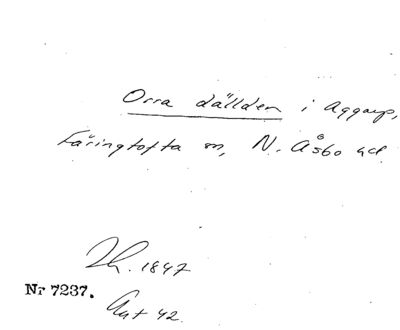 Orra dällden i Aggarp,
Färingtofta sn, N. Åsbo hd
Th. 1847
Nr 7237.
Ant 42.